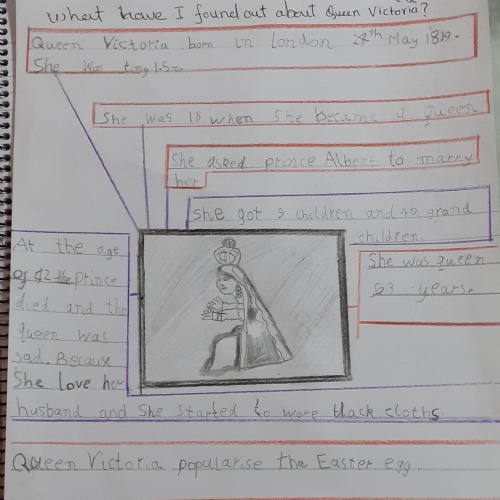 What have I found out about Queen Victoria?
Queen Victoria born in London 24th May 1819.
She was tiny 1.5m
She was 18 when she became a queen
She asked prince Albert to marry
her
She got 9 children and 40 grand
children.
She was queen
63 years.
At the age
of 42 the prince
died and the
queen was
sad. Because
She love her
husband and She started to wore black cloths
Queen Victoria popularise the Easter egg.